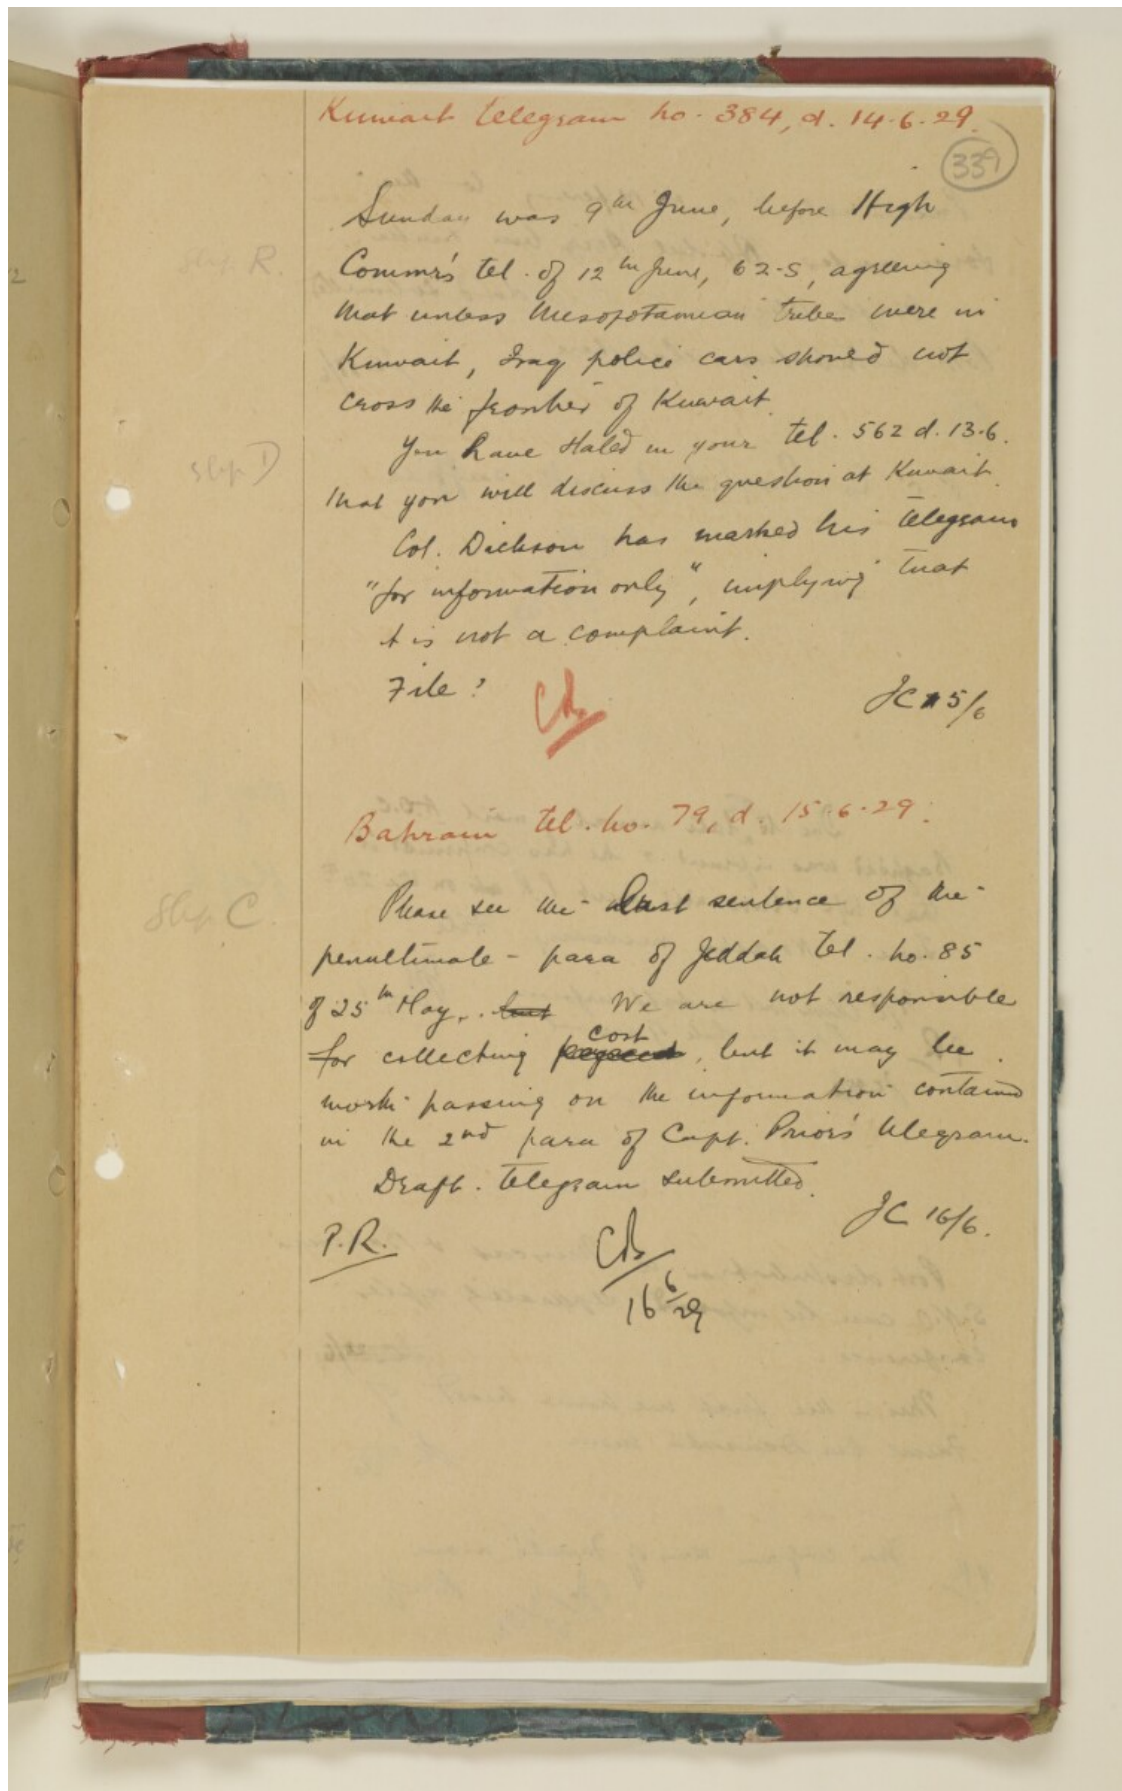 Kuwait telegram no. 384, d. 14.6.29.
339
Sunday was 9th June, before High
Slip R.
Commr's tel. of 12th June, 62-S, agreeing
that unless Mesopotamian tribes were in
Kuwait, Iraq police cars should not
cross the frontier of Kuwait.
You have stated in your tel. 562 d. 13.6.
Slip D
that you will discuss the question at Kuwait.
Col. Dickson has marked his telegram
"for information only", implying that
it is not a complaint.
File?
JC 15/6
Bahrain tel. no. 79, d. 15.6.29.
Slip C.
Please see the last sentence of the
penultimate para of Jeddah tel. no. 85
of 25th May. but We are not responsible
for collecting cost, but it may be
worth passing on the information contained
in the 2nd para of Capt. Prior's telegram.
Draft telegram submitted.
JC 16/6.
P.R.
16/6/29